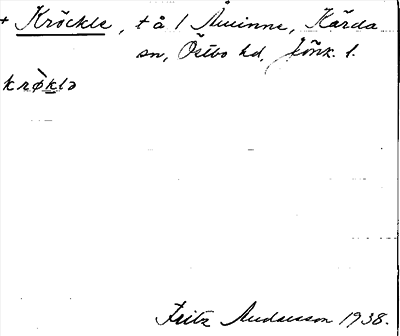 + Kröckle, t å 1 Åminne, Kärda
sn, Östbo hd, Jönk. l.
krø̀klə
Fritz Andersson 1938.